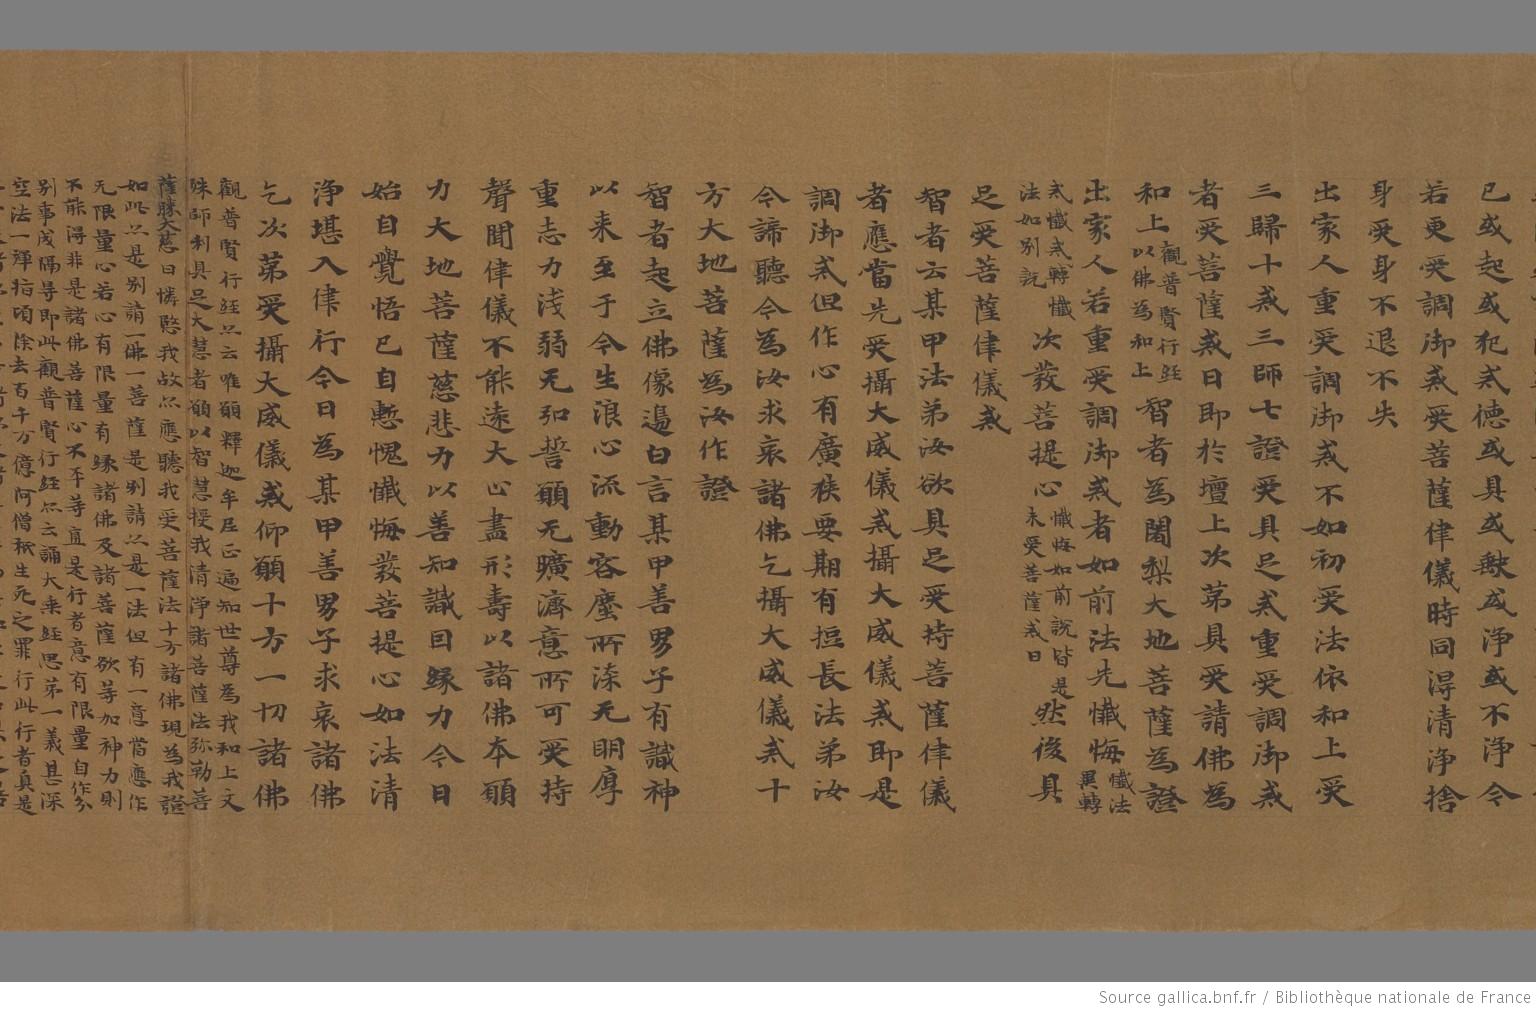 已或起或犯戒德或具或缺或淨或不淨令
若更受調御戒受菩薩律儀時同得清淨捨
身受身不退不失
出家人重受調御戒不如初受法依和上受
三歸十戒三師七證受具足戒重受調御戒
者受菩薩戒日即於壇上次第具受請佛為
和上觀普賢行經以佛為和上智者為闍梨大地菩薩為證
出家人若重受調御戒者如前法先懺悔懺法異轉
戒懺戒轉懺法如別說次發菩提心懺悔如前說皆是未受菩薩戒日然後具
足受菩薩律儀戒
智者云某甲法弟汝欲具足受持菩薩律儀
者應當先受攝大威儀戒攝大威儀戒即是
調御戒但作心有廣狹要期有短長法弟汝
今諦聽今為汝求哀諸佛乞攝大威儀戒十
方大地菩薩為汝作證
智者起立佛像邊白言某甲善男子有識神
以来至于今生浪心流動容塵所染无明厚
重志力淺弱无弘誓願无曠濟意所可受持
聲聞律儀不能遠大心盡形壽以諸佛本願
力大地菩薩慈悲力以善知識因緣力今日
始自覺悟已自慙愧懺悔發菩提心如法清
淨堪入律行今日為某甲善男子求哀諸佛
乞次第受攝大威儀戒仰願十方一切諸佛
觀普賢行經云唯願釋迦牟尼正遍知世尊為我和上文
殊師利具足大慧者願以智慧授我清淨諸菩薩法弥勒菩
薩勝大慈日憐愍我故亦應聽我受菩薩法十方諸佛現為我證
如此是別請一佛一菩薩是別請是一法但有一意當應作
无限量心若心有限量有緣諸佛及諸菩薩欲等加神力則
不能得非是諸佛菩薩心不平等直是行者意有限量自作分
別事成隔导即此觀普賢行經亦云誦大乘經思第一義甚深
空法一彈指頃除去百千万億阿僧祇生死之罪行此行者真是